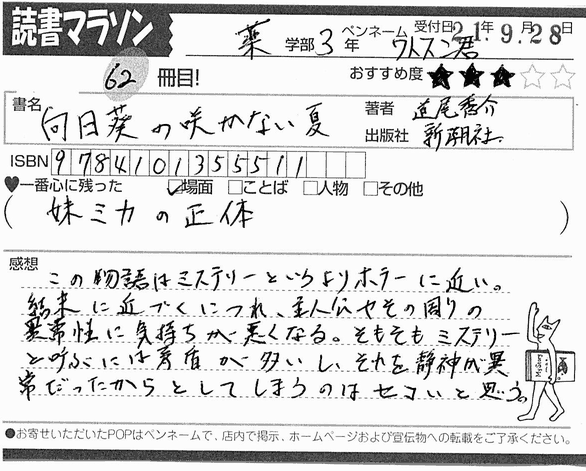 読書マラソン
薬 学部 3 年 ペンネーム ワトスン君 受付日 21年 9月28日
62 冊目! おすすめ度 ★★★☆☆
書名 向日葵の咲かない夏 著者 道尾秀介
出版社 新潮社.
ISBN 9784101355511
♥一番心に残った ☑場面 □ことば □人物 □その他
( 妹ミカの正体 )
感想
この物語はミステリーというよりホラーに近い。
結末に近づくにつれ、主人公やその周りの
異常性に気持ちが悪くなる。そもそもミステリー
と呼ぶには矛盾が多いし、それを精神が異
常だったからとしてしまうのはセコいと思う。
●お寄せいただいたPOPはペンネームで、店内で掲示、ホームページおよび宣伝物への転載をご了承ください。